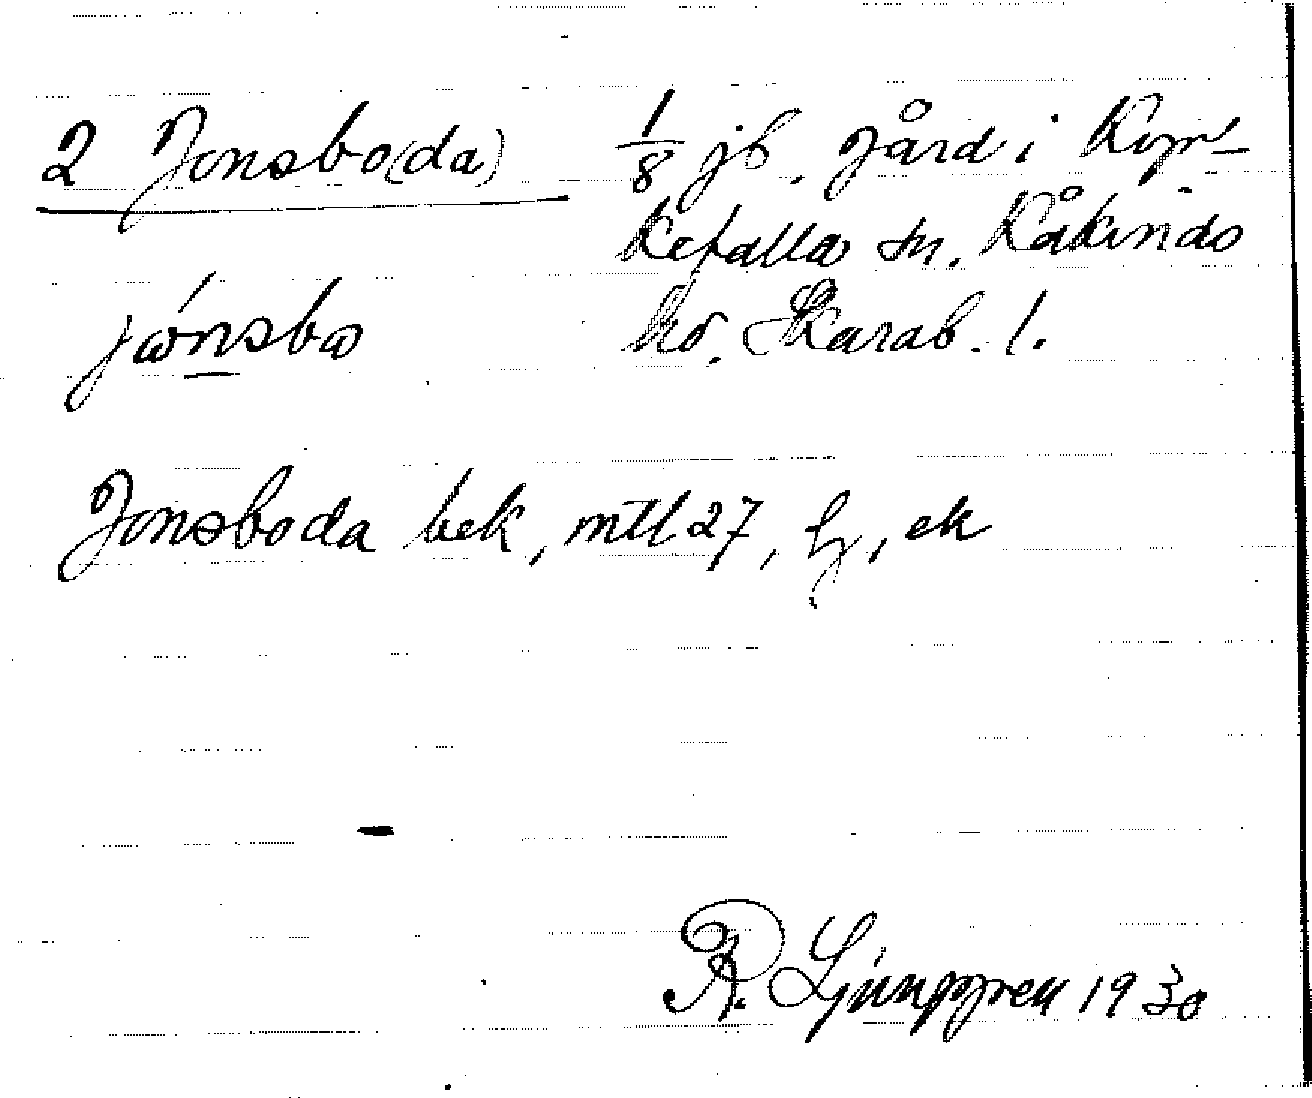 2 Jonsbo(da) 1/8 jb. gård i Kyr-
kefalla sn. Kåkinds
hd. Skarab. l.
jónsbω
Jonsboda bek, mtl 27, , ek
R. Ljunggren 1930